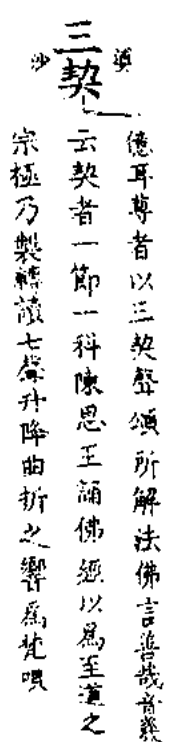 三契
億耳尊者以三契聲頌所解法佛言善哉音契
云契者一節一科陳思王誦佛經以為至道之
宗極乃製轉讀七聲升降曲折之響為梵唄